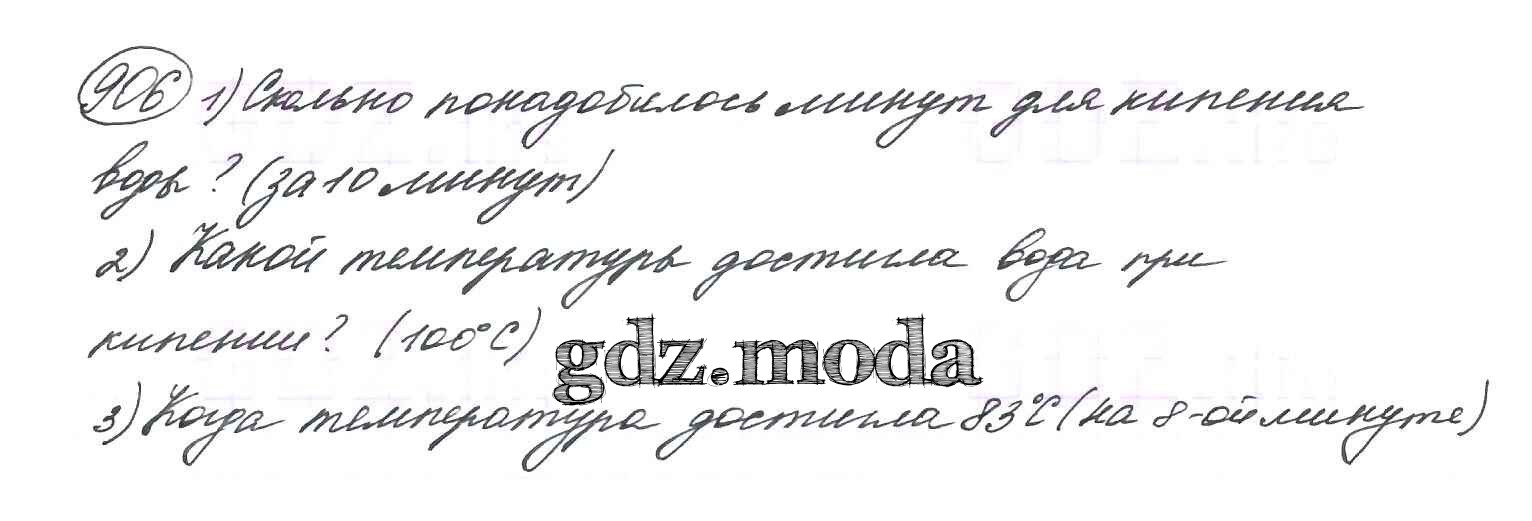 906 1) Сколько понадобилось минут для кипения
воды? (за 10 минут)
2) Какой температуры достигла вода при
кипении? (100°С)
gdz.moda
3) Когда температура достигла 83°С (на 8-ой минуте)